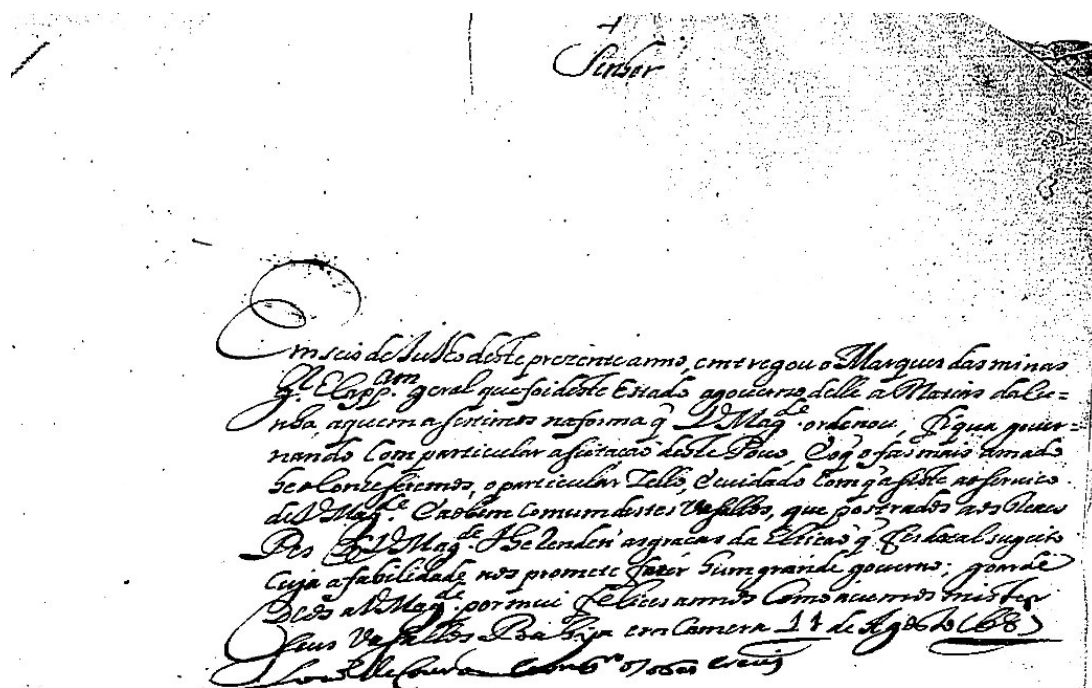 Senhor
Em seis de Julho deste prezente anno, entregou o Marques das minas
g.l E Capp.am geral que foi deste Estado o gouerno delle a Matias da Cu=
nha, aquem asistimos na forma q̃ V Mag.de ordenou, fiqua gouer=
nando Com particular aseitação deste Pouo, E o q̃ o fas mais amado
he o particular Zello, E cuidado Com q̃ asiste ao seruico
de V Mag.de E ao bem Comum destes Vasallos, que postrados aos Reaes
Pes de V Mag.de lhe Renden as graças da Eleicaõ q̃ fes de tal sugeito
Cuja afabilidade nos promete fazer hum grande gouerno; goarde
Deos a V Mag.de por mui felices annos Como auemos mister
seus Vasallos Bahya em Camera 11 de Agosto 687